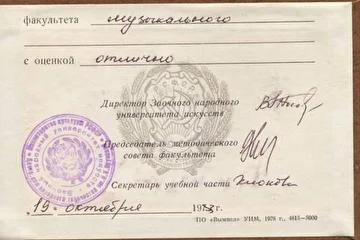 факультета музыкального
с оценкой отлично
Директор Заочного народного
университета искусств
Председатель методического
совета факультета
Секретарь учебной части
19. октября 197
ПО «Вымпел» УИМ, 1978 г., 4815—5000